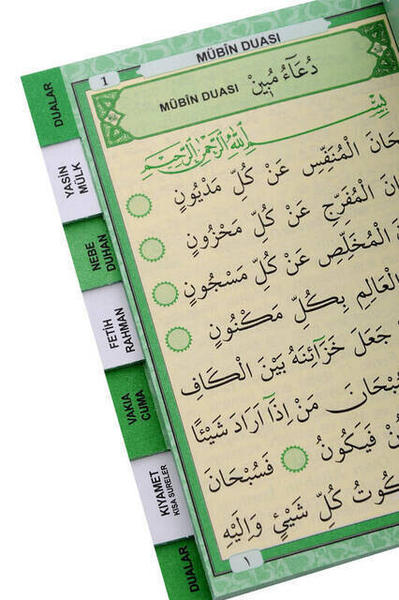 MÜBİN DUASI
1
MÜBİN DUASI دُعَاءُ مُبِينْ
بِسْمِ اللّٰهِ الرَّحْمٰنِ الرَّحِيمِ
الْمُنَفِّسِ عَنْ كُلِّ مَدْيُونٍ
الْمُفَرِّجِ عَنْ كُلِّ مَحْزُونٍ
الْمُخَلِّصِ عَنْ كُلِّ مَسْجُونٍ
الْعَالِمِ بِكُلِّ مَكْنُونٍ
جَعَلَ خَزَائِنَهُ بَيْنَ الْكَافِ
سُبْحَانَ مَنْ اِذَا اَرَادَ شَيْئًا
فَيَكُونُ فَسُبْحَانَ
كُلِّ شَيْئٍ وَاِلَيْهِ
١
DUALAR
YASİN
MÜLK
NEBE
DUHAN
FETİH
RAHMAN
VAKIA
CUMA
KIYAMET
KISA SURELER
DUALAR